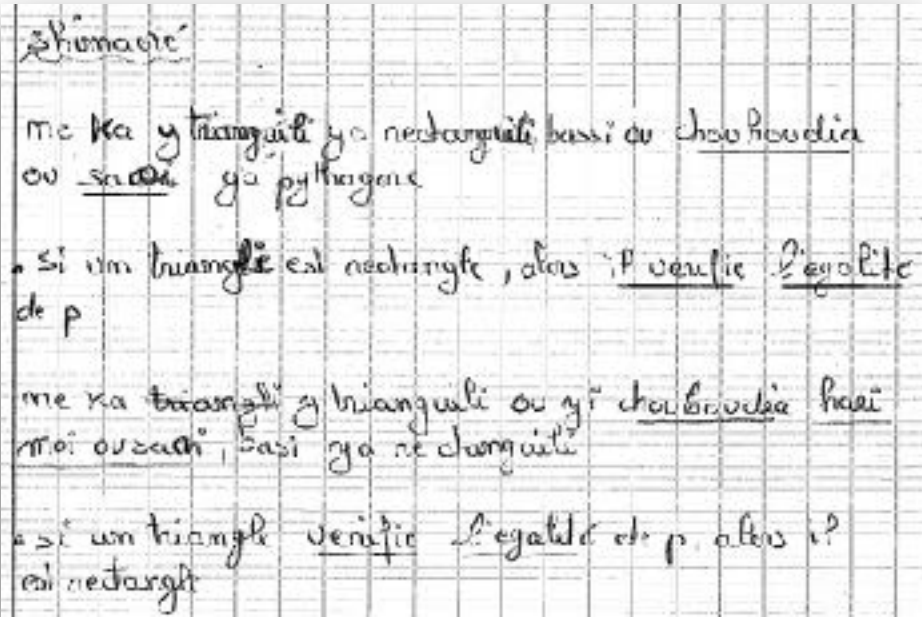 shimaoré
me ka y trianguili ya rectanguili bassi ou chouhoudia
ou sawa ya pythagore
. si un triangle est rectangle, alors il verifie l'egalite
de p
me ka triangli y trianguili ou yi chouhoudia hari
moi ouzadi, basi ya rectanguili
. si un triangle verifie l'egalité de p. alors il
est rectangle